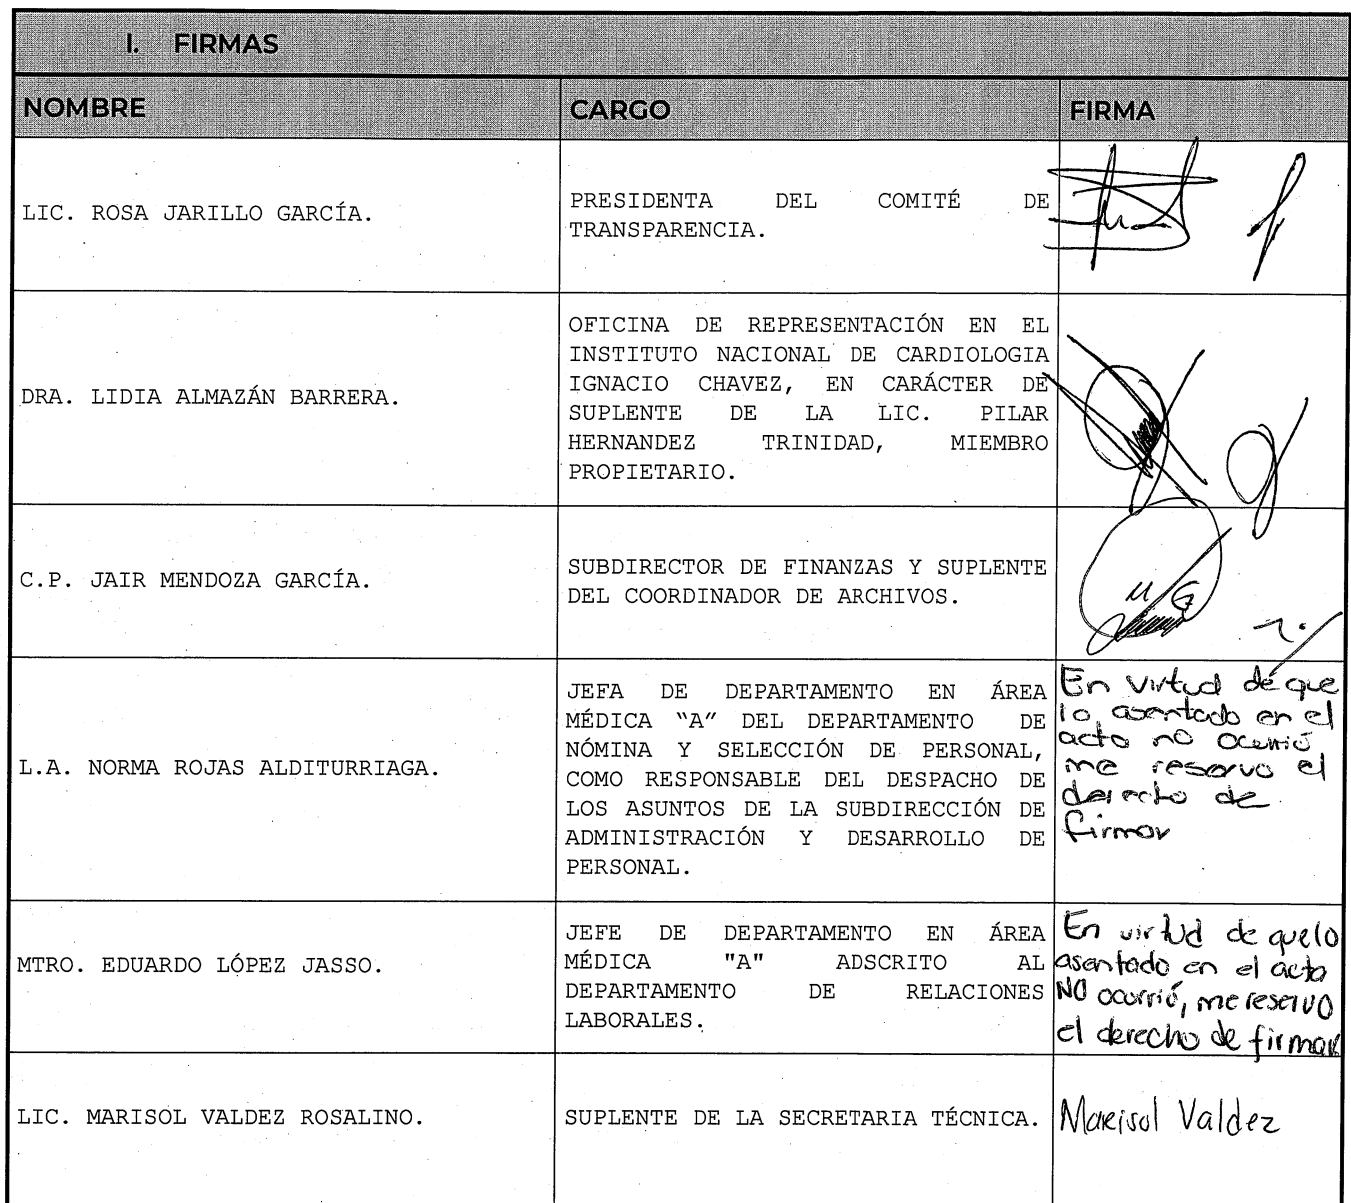 I. FIRMAS
NOMBRE
CARGO
FIRMA
LIC. ROSA JARILLO GARCÍA.
PRESIDENTA DEL COMITÉ DE
TRANSPARENCIA.
DRA. LIDIA ALMAZÁN BARRERA.
OFICINA DE REPRESENTACIÓN EN EL
INSTITUTO NACIONAL DE CARDIOLOGIA
IGNACIO CHAVEZ, EN CARÁCTER DE
SUPLENTE DE LA LIC. PILAR
HERNANDEZ TRINIDAD, MIEMBRO
PROPIETARIO.
C.P. JAIR MENDOZA GARCÍA.
SUBDIRECTOR DE FINANZAS Y SUPLENTE
DEL COORDINADOR DE ARCHIVOS.
L.A. NORMA ROJAS ALDITURRIAGA.
JEFA DE DEPARTAMENTO EN ÁREA
MÉDICA “A” DEL DEPARTAMENTO DE
NÓMINA Y SELECCIÓN DE PERSONAL,
COMO RESPONSABLE DEL DESPACHO DE
LOS ASUNTOS DE LA SUBDIRECCIÓN DE
ADMINISTRACIÓN Y DESARROLLO DE
PERSONAL.
En virtud de que
lo asentado en el
acta no ocurrió
me reservo el
derecho de
firmar
MTRO. EDUARDO LÓPEZ JASSO.
JEFE DE DEPARTAMENTO EN ÁREA
MÉDICA "A" ADSCRITO AL
DEPARTAMENTO DE RELACIONES
LABORALES.
En virtud de que lo
asentado en el acta
NO ocurrió, me reservo
el derecho de firmar
LIC. MARISOL VALDEZ ROSALINO.
SUPLENTE DE LA SECRETARIA TÉCNICA.
Marisol Valdez